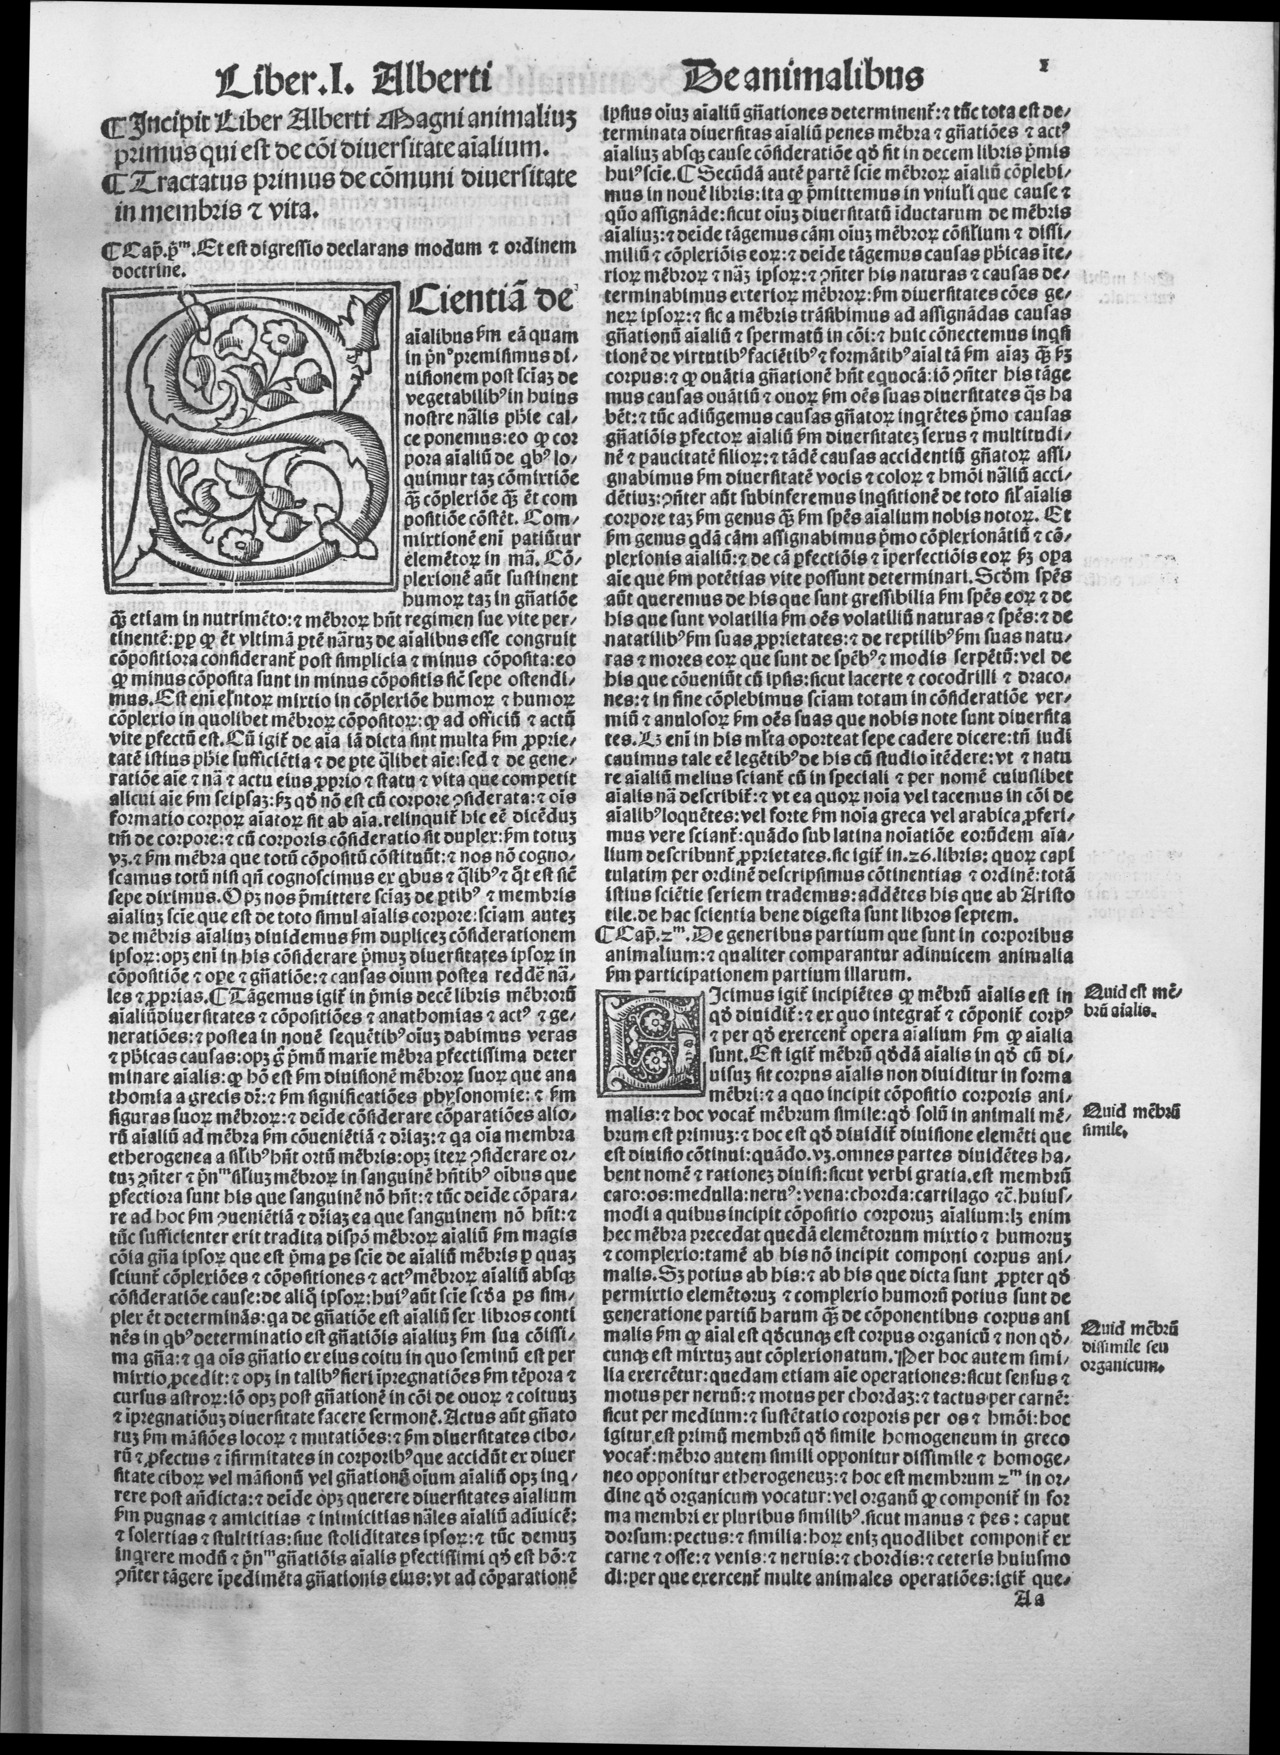 Liber.I. Alberti
De animalibus
1
¶Incipit Liber Alberti Magni animaliuz
primus qui est de cōi diuersitate aīalium.
¶Tractatus primus de cōmuni diuersitate
in membris ⁊ vita.
¶Cap̄.p̄ᵐ.Et est digressio declarans modum ⁊ ordinem
doctrine.
SCientiā de
aīalibus ẜm eā quam
in p̄nꝰ premisimus di/
uisionem post sciāz de
vegetabilibꝰ in huius
nostre nālis phīe cal/
ce ponemus:eo ꝙ cor
pora aīaliū de qbꝰ lo/
quimur taz cōmixtiōe
q̄ꝫ cōplexiōe q̄ꝫ ēt com
positiōe cōstēt. Com/
mixtionē eni patiūtur
elemētoꝝ in mā. Cō/
plexionē aūt sustinent
humoꝝ taz in gn̄atiōe
q̄ꝫ etiam in nutrimēto:⁊ mēbroꝝ hn̄t regimen sue vite per/
tinentē:ꝓp ꝙ ēt vltimā ptē nāruz de aīalibus esse congruit
cōpositiora considerant̄ post simplicia ⁊ minus cōposita:eo
ꝙ minus cōposita sunt in minus cōpositis sic̄ sepe ostendi/
mus.Est eni eln̄toꝝ mixtio in cōplexiōe humoꝝ ⁊ humoꝝ
cōplexio in quolibet mēbroꝝ cōpositoꝝ:ꝙ ad officiū ⁊ actū
vite ꝑfectū est.Cū igit̄ de aīa iā dicta sint multa ẜm ꝓprie/
tatē istius phīe sufficiētia ⁊ de ꝑte q̄libet aīe:sed ⁊ de gene/
ratiōe aīe ⁊ nā ⁊ actu eius ꝓprio ⁊ statu ⁊ vita que competit
alicui aīe ẜm seipsaz:ẜꝫ qď nō est cū corpore ꝯsiderata:⁊ oīs
formatio corpoꝝ aīatoꝝ sit ab aīa.relinquit̄ hic eē dicēduz
tm̄ de corpore:⁊ cū corporis cōsideratio sit duplex:ẜm totuz
vꝫ.⁊ ẜm mēbra que totū cōpositū cōstituūt:⁊ nos nō cogno/
scamus totū nisi qn̄ cognoscimus ex qbus ⁊ q̄libꝰ ⁊ q̄t est sic̄
sepe diximus.Opꝫ nos p̄mittere sciāz de ꝑtibꝰ ⁊ membris
aīaliuz scīe que est de toto simul aīalis corpore:sciam autez
de mēbris aīaliuz diuidemus ẜm duplicez cōsiderationem
ipsoꝝ:opꝫ eni in his cōsiderare p̄muz diuersitates ipsoꝝ in
cōpositiōe ⁊ ope ⁊ gn̄atiōe:⁊ causas oīum postea reddē nā/
les ⁊ ꝓprias.¶Tāgemus igit̄ in p̄mis decē libris mēbrorū
aīaliū diuersitates ⁊ cōpositiōes ⁊ anathomias ⁊ actꝰ ⁊ ge/
neratiōes:⁊ postea in nouē sequētibꝰ oīuz dabimus veras
⁊ phīcas causas:opꝫ g̊ p̄mū maxīe mēbra ꝑfectissima deter
minare aīalis:ꝙ hō est ẜm diuisionē mēbroꝝ suoꝝ que ana
thomia a grecis dr̄:⁊ ẜm significatiōes physonomie:⁊ ẜm
figuras suoꝝ mēbroꝝ:⁊ deīde cōsiderare cōparatiōes alio/
rū aīaliū ad mēbra ẜm cōueniētiā ⁊ dr̄iaz:⁊ qa oīa membra
etherogenea a sil̄ibꝰ hn̄t ortū mēbris:opꝫ iteꝝ ꝯsiderare or/
tuz ꝯn̄ter ⁊ p̄nᵐ sil̄iuz mēbroꝝ in sanguinē hn̄tibꝰ oībus que
ꝑfectiora sunt his que sanguinē nō hn̄t:⁊ tūc deīde cōpara/
re ad hoc ẜm ꝯueniētiā ⁊ dr̄iaz ea que sanguinem nō hn̄t:⁊
tūc sufficienter erit tradita dispō mēbroꝝ aīaliū ẜm magis
cōia gn̄a ipsoꝝ que est p̄ma ps scīe de aīaliū mēbris ꝑ quaz
sciunt̄ cōplexiōes ⁊ cōpositiones ⁊ actꝰ mēbroꝝ aīaliū absqꝫ
cōsideratiōe cause:de aliq̄ ipsoꝝ:huiꝰ aūt scīe scďa ps sim/
plex ēt determināš:qa de gn̄atiōe est aīaliū sex libros conti
nēs in qbꝰ determinatio est gn̄atiōis aīaliuz ẜm sua cōissi/
ma gn̄a:⁊ qa oīs gn̄atio ex eius coitu in quo seminū est per
mixtio ꝓcedit:⁊ opꝫ in talibꝰ fieri īpregnatiōes ẜm tēpora ⁊
cursus astroꝝ:iō opꝫ post gn̄ationē in cōi de ouoꝝ ⁊ coituuz
⁊ īpregnatiōuz diuersitate facere sermonē.Actus aūt gn̄ato
ruz ẜm māsiōes locoꝝ ⁊ mutatiōes:⁊ ẜm diuersitates cibo/
rū ⁊ ꝓfectus ⁊ īfirmitates in corporibꝰ que accidūt ex diuer
sitate ciboꝝ vel māsionū vel gn̄ationū oīum aīaliū opꝫ inq/
rere post an̄dicta:⁊ deīde opꝫ querere diuersitates aīalium
ẜm pugnas ⁊ amicitias ⁊ inimicitias nāles aīaliū adīuicē:
⁊ solertias ⁊ stultitias:siue stoliditates ipsoꝝ:⁊ tūc demuz
inqrere modū ⁊ p̄nᵐ gn̄atiōis aīalis ꝑfectissimi qď est hō:⁊
ꝯn̄ter tāgere īpedimēta gn̄ationis eius:vt ad cōparationē
ipsius oīuz aīaliū gn̄ationes determinent̄:⁊ tūc tota est de/
terminata diuersitas aīaliū penes mēbra ⁊ gn̄atiōes ⁊ actꝰ
aīaliuz absqꝫ cause cōsideratiōe qď fit in decem libris p̄mis
huiꝰ scīe.¶Secūdā autē partē scīe mēbroꝝ aīaliū cōplebi/
mus in nouē libris:ita ꝙ p̄mittemus in vniuľi que cause ⁊
quō assignāde:sicut oīuz diuersitatū īductarum de mēbris
aīaliuz:⁊ deīde tāgemus cām oīuz mēbroꝝ cōsil̄ium ⁊ dissi/
miliū ⁊ cōplexiōis eoꝝ:⁊ deīde tāgemus causas phīcas īte/
rioꝝ mēbroꝝ ⁊ nāz ipsoꝝ:⁊ ꝯn̄ter his naturas ⁊ causas de/
terminabimus exterioꝝ mēbroꝝ:ẜm diuersitates cōes ge/
neꝝ ipsoꝝ:⁊ sic a mēbris trāsibimus ad assignādas causas
gn̄ationū aīaliū ⁊ spermatū in cōi:⁊ huic cōnectemus inqsi
tionē de virtutibꝰ faciētibꝰ ⁊ formātibꝰ aīal tā ẜm aīaz q̄ꝫ ẜꝫ
corpus:⁊ ꝙ ouātia gn̄ationē hn̄t equocā:iō ꝯn̄ter his tāge
mus causas ouātiū ⁊ ouoꝝ ẜm oēs suas diuersitates q̄s ha
bēt:⁊ tūc adiūgemus causas gn̄atoꝝ inqrētes p̄mo causas
gn̄atiōis ꝑfectoꝝ aīaliū ẜm diuersitatez sexus ⁊ multitudi/
nē ⁊ paucitatē filioꝝ:⁊ tādē causas accidentiū gn̄atoꝝ assi/
gnabimus ẜm diuersitatē vocis ⁊ coloꝝ ⁊ hmōi nāliū acci/
dētiuz:ꝯn̄ter aūt subinferemus inqsitionē de toto sil̄ aīalis
corpore taz ẜm genus q̄ꝫ ẜm spēs aīalium nobis notoꝝ. Et
ẜm genus qdā cām assignabimus p̄mo cōplexionātiū ⁊ cō/
plexionis aīaliū:⁊ de cā ꝑfectiōis ⁊ īperfectiōis eoꝝ ẜꝫ opa
aīe que ẜm potētias vite possunt determinari.Scďm spēs
aūt queremus de his que sunt gressibilia ẜm spēs eoꝝ ⁊ de
his que sunt volatilia ẜm oēs volatiliū naturas ⁊ spēs:⁊ de
natatilibꝰ ẜm suas ꝓprietates:⁊ de reptilibꝰ ẜm suas natu/
ras ⁊ mores eoꝝ que sunt de spēbꝰ ⁊ modis serpētū:vel de
his que cōueniūt cū ipsis:sicut lacerte ⁊ cocodrilli ⁊ draco/
nes:⁊ in fine cōplebimus sciam totam in cōsideratiōe ver/
miū ⁊ anulosoꝝ ẜm oēs suas que nobis note sunt diuersita
tes.Lꝫ eni in his ml̄ta oporteat sepe cadere dicere:tn̄ iudi
cauimus tale eē legētibꝰ de his cū studio ītēdere:vt ⁊ natu
re aīaliū melius sciant̄ cū in speciali ⁊ per nomē cuiuslibet
aīalis nā describit̄:⁊ vt ea quoꝝ noīa vel tacemus in cōi de
aīalibꝰ loquētes:vel forte ẜm noīa greca vel arabica ꝓferi/
mus vere sciant̄:quādo sub latina noīatiōe eorūdem aīa/
lium describunt̄ ꝓprietates.sic igit̄ in.26.libris:quoꝝ capi
tulatim per ordinē descripsimus cōtinentias ⁊ ordinē:totā
istius sciētie seriem trademus:addētes his que ab Aristo
tile.de hac scientia bene digesta sunt libros septem.
¶Cap̄.2ᵐ.De generibus partium que sunt in corporibus
animalium:⁊ qualiter comparantur adinuicem animalia
ẜm participationem partium illarum.
DIcimus igit̄ incipiētes ꝙ mēbrū aīalis est in
qď diuidit̄:⁊ ex quo integrat̄ ⁊ cōponit̄ corpꝰ
⁊ per qď exercent̄ opera aīalium ẜm ꝙ aīalia
sunt.Est igit̄ mēbrū qďdā aīalis in qď cū di/
uisuz sit corpus aīalis non diuiditur in forma
mēbri:⁊ a quo incipit cōpositio corporis ani/
malis:⁊ hoc vocat̄ mēbrum simile:qď solū in animali mē/
brum est primuz:⁊ hoc est qď diuidit̄ diuisione elemēti que
est diuisio cōtinui:quādo.vꝫ.omnes partes diuidētes ha/
bent nomē ⁊ rationez diuisi:sicut verbi gratia.est membrū
caro:os:medulla:neruꝰ:vena:chorda:cartilago ⁊c̄.huius/
modi a quibus incipit cōpositio corporuz aīalium:lꝫ enim
hec mēbra precedat quedā elemētorum mixtio ⁊ humoruz
⁊ complexio:tamē ab his nō incipit componi corpus ani/
malis.Sꝫ potius ab his:⁊ ab his que dicta sunt ꝓpter qď
permixtio elemētoruz ⁊ complexio humorū potius sunt de
generatione partiū harum q̄ꝫ de cōponentibus corpus ani
malis ẜm ꝙ aīal est qďcunqꝫ est corpus organicū ⁊ non qď/
cunqꝫ est mixtuz aut cōplexionatum.Per hoc autem simi/
lia exercētur:quedam etiam aīe operationes:sicut sensus ⁊
motus per neruū:⁊ motus per chordaz:⁊ tactus per carnē:
sicut per medium:⁊ sustētatio corporis per os ⁊ hmōi:hoc
igitur est primū membrū qď simile homogeneum in greco
vocat̄:mēbro autem simili opponitur dissimile ⁊ homoge/
neo opponitur etherogeneuz:⁊ hoc est membrum 2ᵐ in or/
dine qď organicum vocatur:vel organū ꝙ componit̄ in for
ma membri ex pluribus similibꝰ.sicut manus ⁊ pes: caput
dorsum:pectus:⁊ similia:hoꝝ enīz quodlibet componit̄ ex
carne ⁊ osse:⁊ venis:⁊ neruis:⁊ chordis:⁊ ceteris huiusmo
di:per que exercent̄ multe animales operatiōes:igit̄ que/
Aa
Quid est mē/
brū aīalis.
Quid mēbrū
simile.
Quid mēbrū
dissimile seu
organicum.